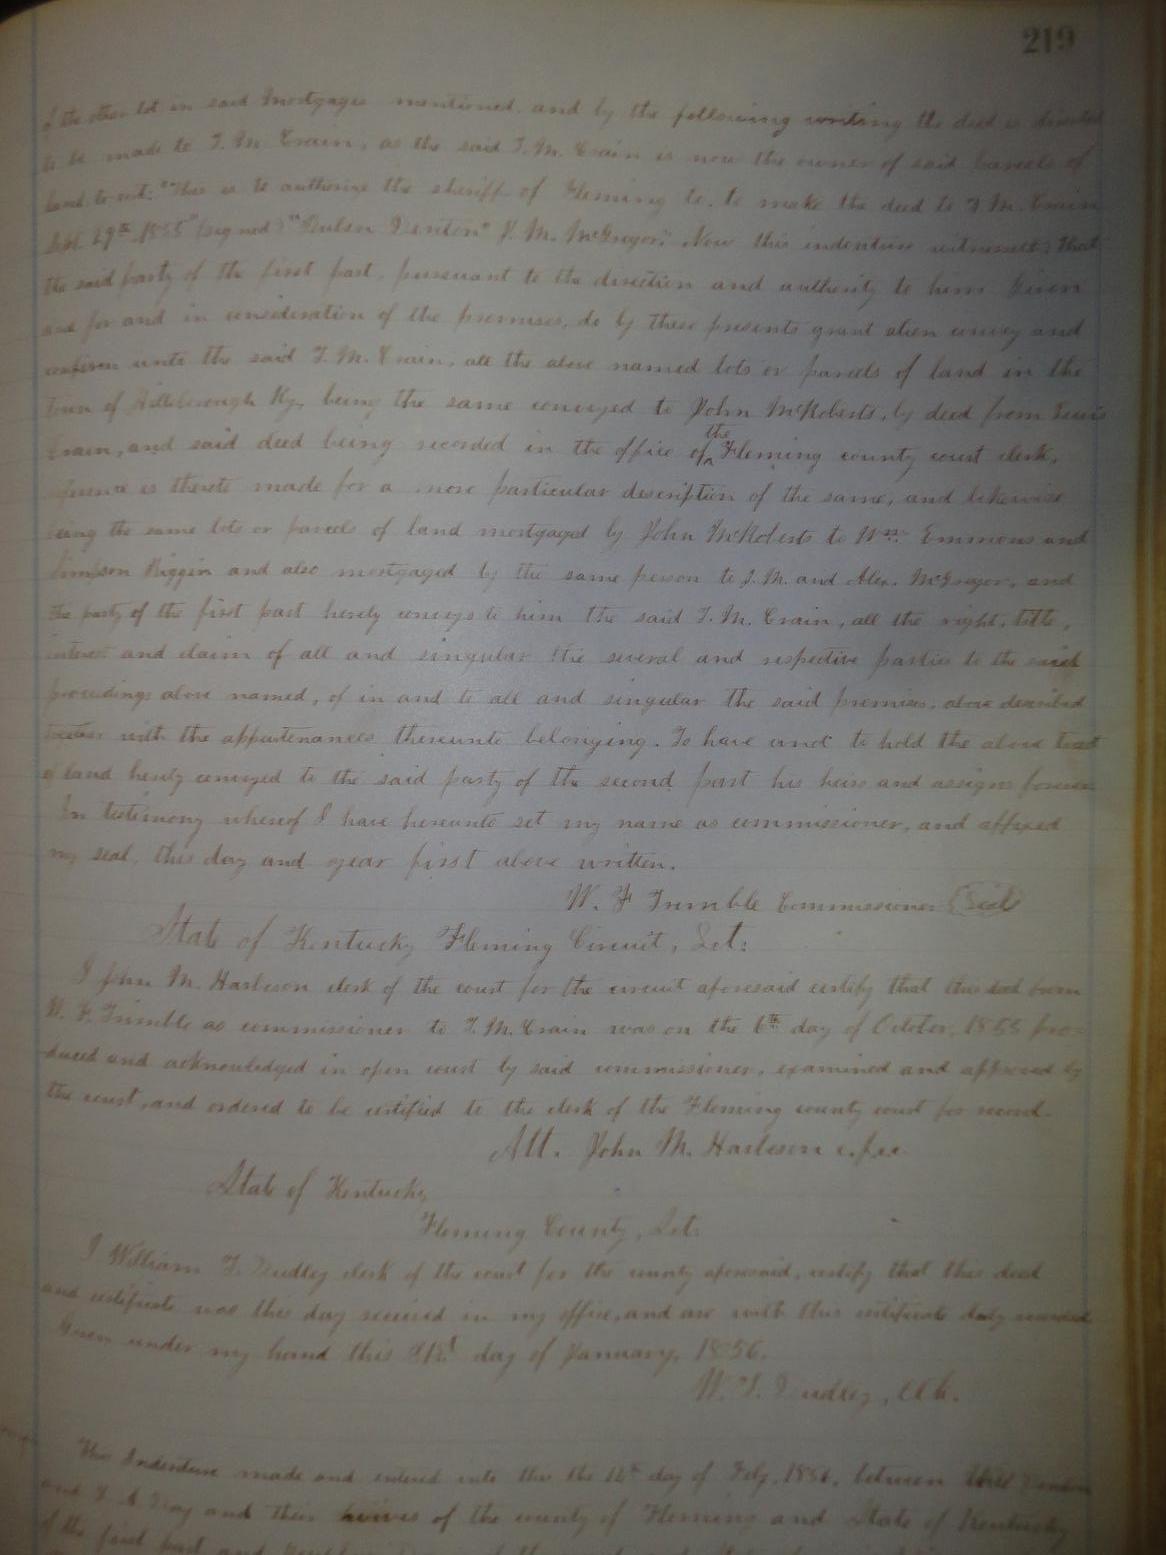 219
of the other lot in said mortgages mentioned, and by the following writing the deed is directed
to be made to T. M. Crain, as the said T. M. Crain is now the owner of said parcels of
land to-wit: "This is to authorize the sheriff of Fleming co. to make the deed to T. M. Crain
Sept. 29th 1855" (signed) "Denton" J. M. McGregor." Now this indenture witnesseth: That
the said party of the first part, pursuant to the direction and authority to him given
and for and in consideration of the premises, do by these presents grant alien convey and
confirm unto the said T. M. Crain, all the above named lots or parcels of land in the
Town of Hillsborough Ky, being the same conveyed to John McRoberts, by deed from Lewis
Crain, and said deed being recorded in the office of the Fleming county court clerk,
is thereto made for a more particular description of the same, and likewise
being the same lots or parcels of land mortgaged by John McRoberts to Wm. Emmons and
Simpson Riggin and also mortgaged by the same person to J. M. and Alex. McGregor, and
the party of the first part hereby conveys to him the said T. M. Crain, all the right, title,
interest and claim of all and singular the several and respective parties to the said
proceedings above named, of in and to all and singular the said premises, above described
together with the appurtenances thereunto belonging. To have and to hold the above tract
of land hereby conveyed to the said party of the second part his heirs and assigns forever.
In testimony whereof I have hereunto set my name as commissioner, and affixed
my seal, this day and year first above written.
W. F Trimble Commissioner Seal
State of Kentucky Fleming Circuit, Sct:
I John M. Harbeson clerk of the court for the circuit aforesaid certify that this deed from
W. F. Trimble as commissioner to T. M. Crain was on the 6th day of October, 1855 pro-
duced and acknowledged in open court by said commissioner, examined and approved by
the court, and ordered to be certified to the clerk of the Fleming county court for record.
Att. John M. Harbeson c.f.c.c.
State of Kentucky
Fleming County, Sct.
I William T. Dudley clerk of the court for the county aforesaid, certify that this deed
and certificate was this day received in my office, and are with this certificate duly recorded
Given under my hand this day of January, 1856.
W. T. Dudley, Clk.
This Indenture made and entered into this the 12th day of Feby. 1856, between
and and their wives of the county of Fleming and State of Kentucky
of the first part and